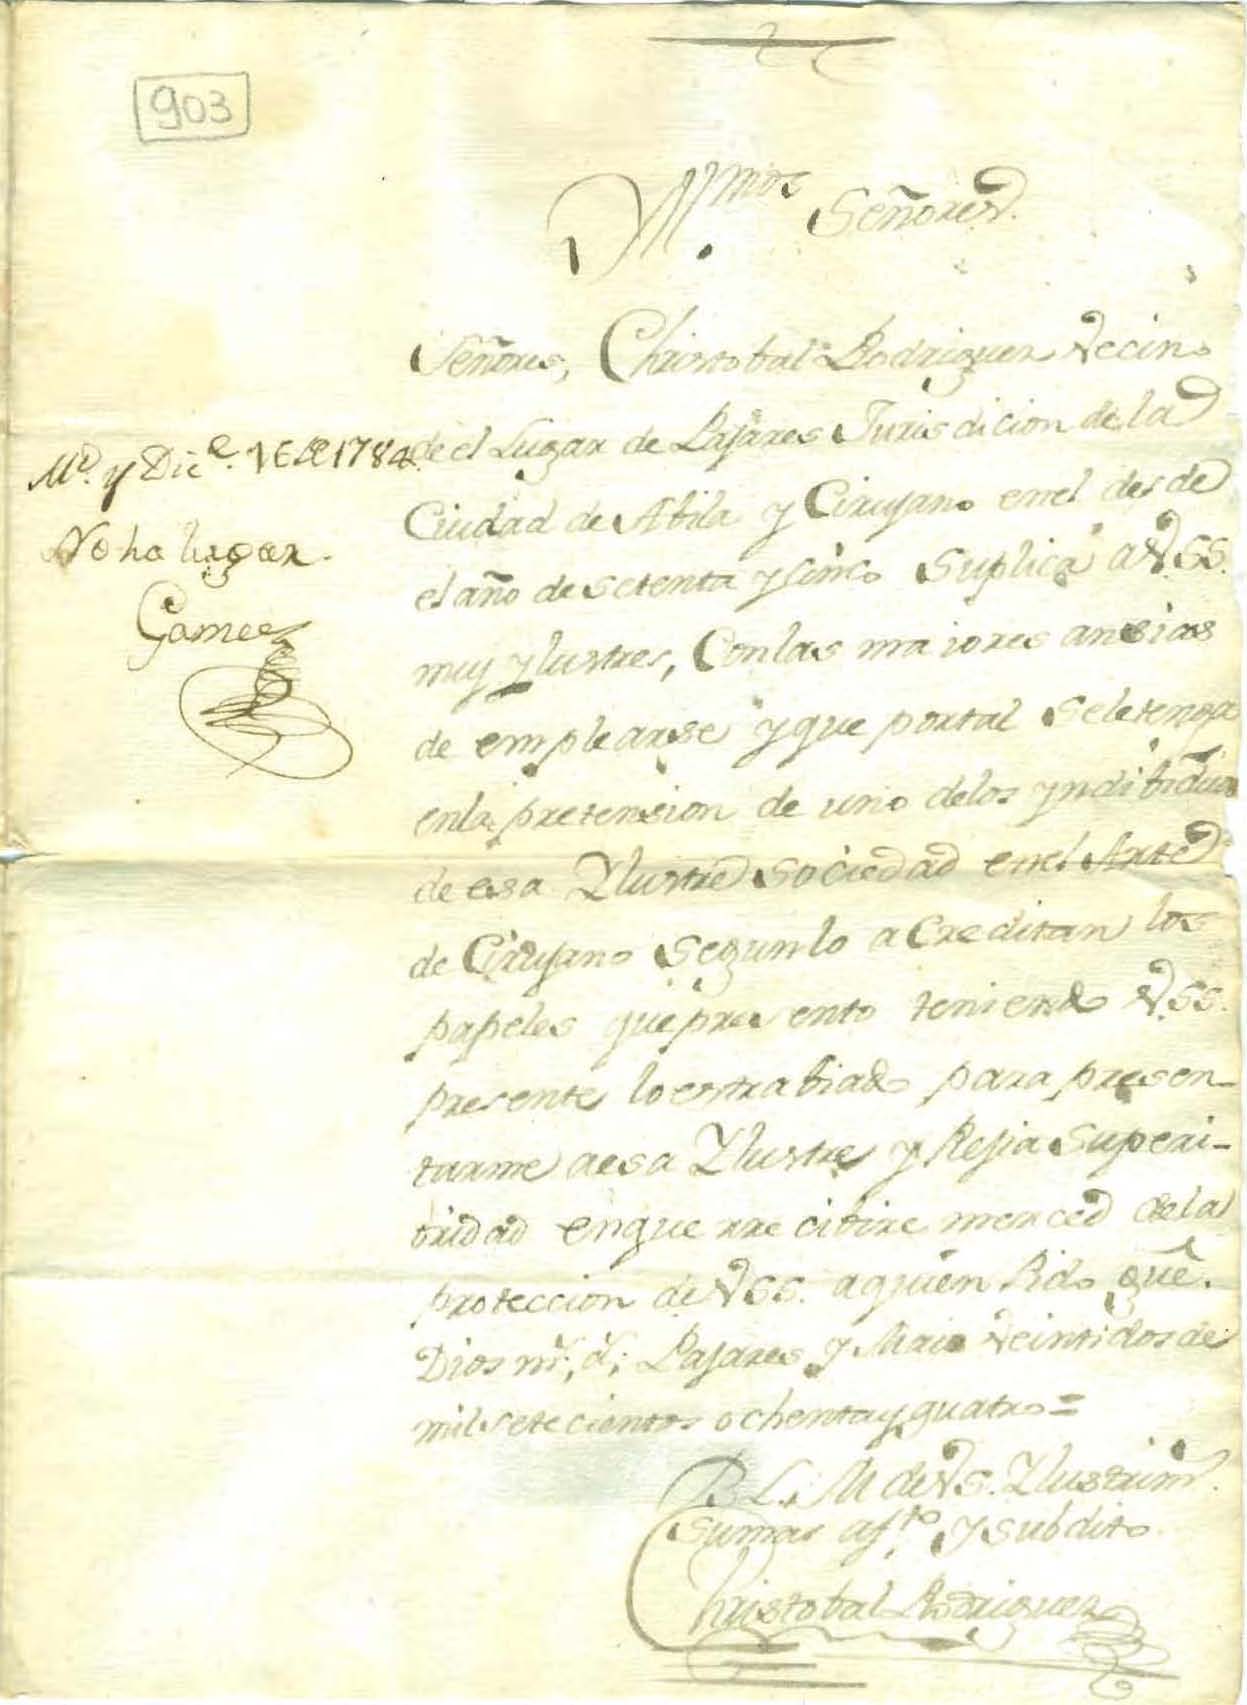 903
Yllmos Señores.
Señores, Christobal Rodriguez Vecino
de el Lugar de Pajares Jurisdicion de la
Ciudad de Abila y Cirujano en el desde
el año de setenta y sinco Suplica a VSS.
muy ylustres, Con las maiores ansias
de emplearse y que por tal se le tenga
en la pretension de uno de los yndibiduos
de esa Ylustre sociedad en el Arte
de Cirujano segun lo aCreditan los
papeles que presento teniendo VSS.
presente lo estrabiado para presen-
tarme aesa Ylustre y Rejia superi-
oridad en que rrecibire merced de la
proteccion de VSS. a quien Pido que.
Dios ms. as. Pajares y Maio Veintidos de
mil setecientos ochenta y quatro =
B. L. M de VS. Ylustrims.
su mas afto. y subdito
Christobal Rodriguez
Md. y Dice. 16 de 1784.
No ha lugar.
Gamez